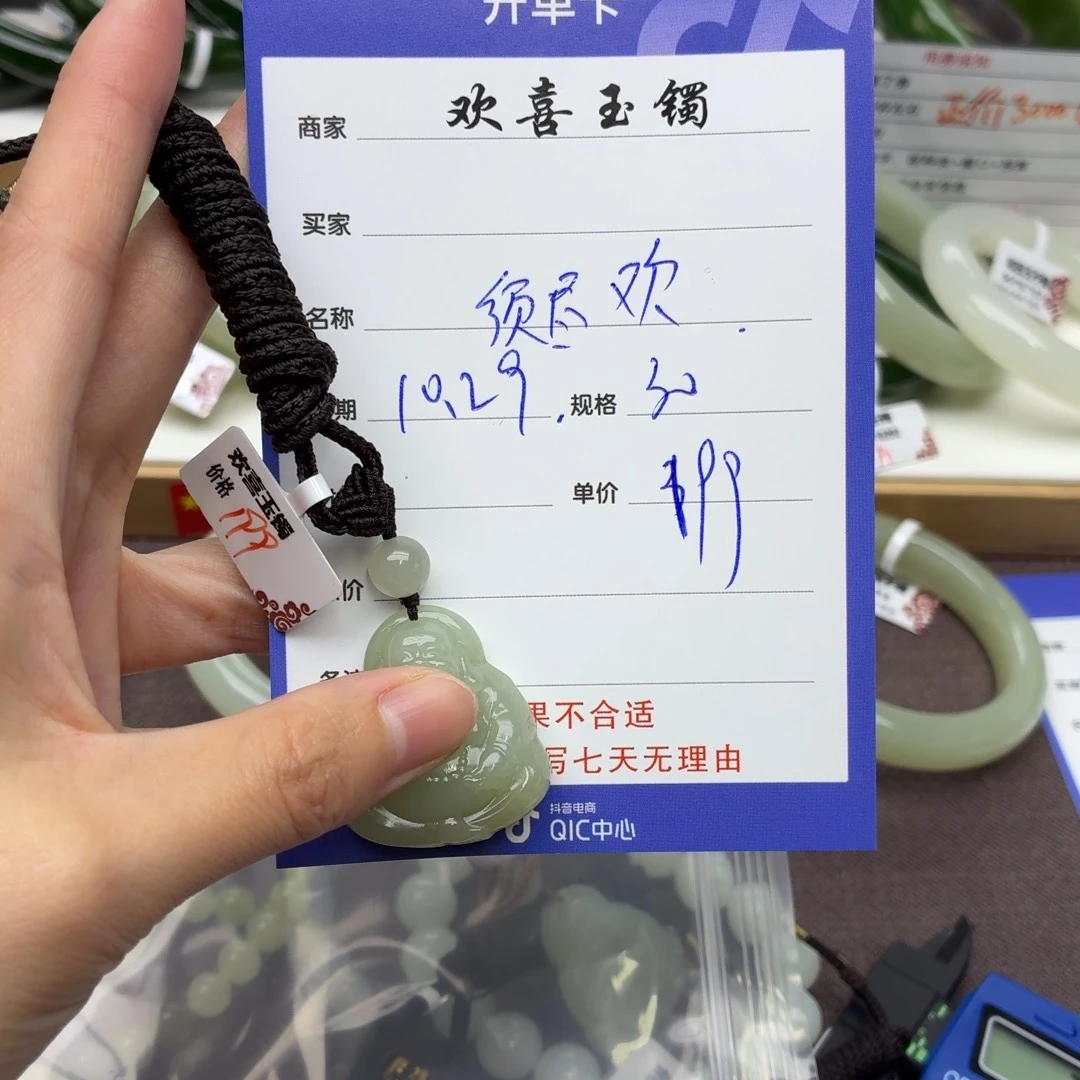 开单卡
商家 欢喜玉镯
买家
名称 须尽欢
期 10.29. 规格
单价 199
价
果不合适
写七天无理由
抖音电商
QIC中心
欢喜玉镯
价格 199